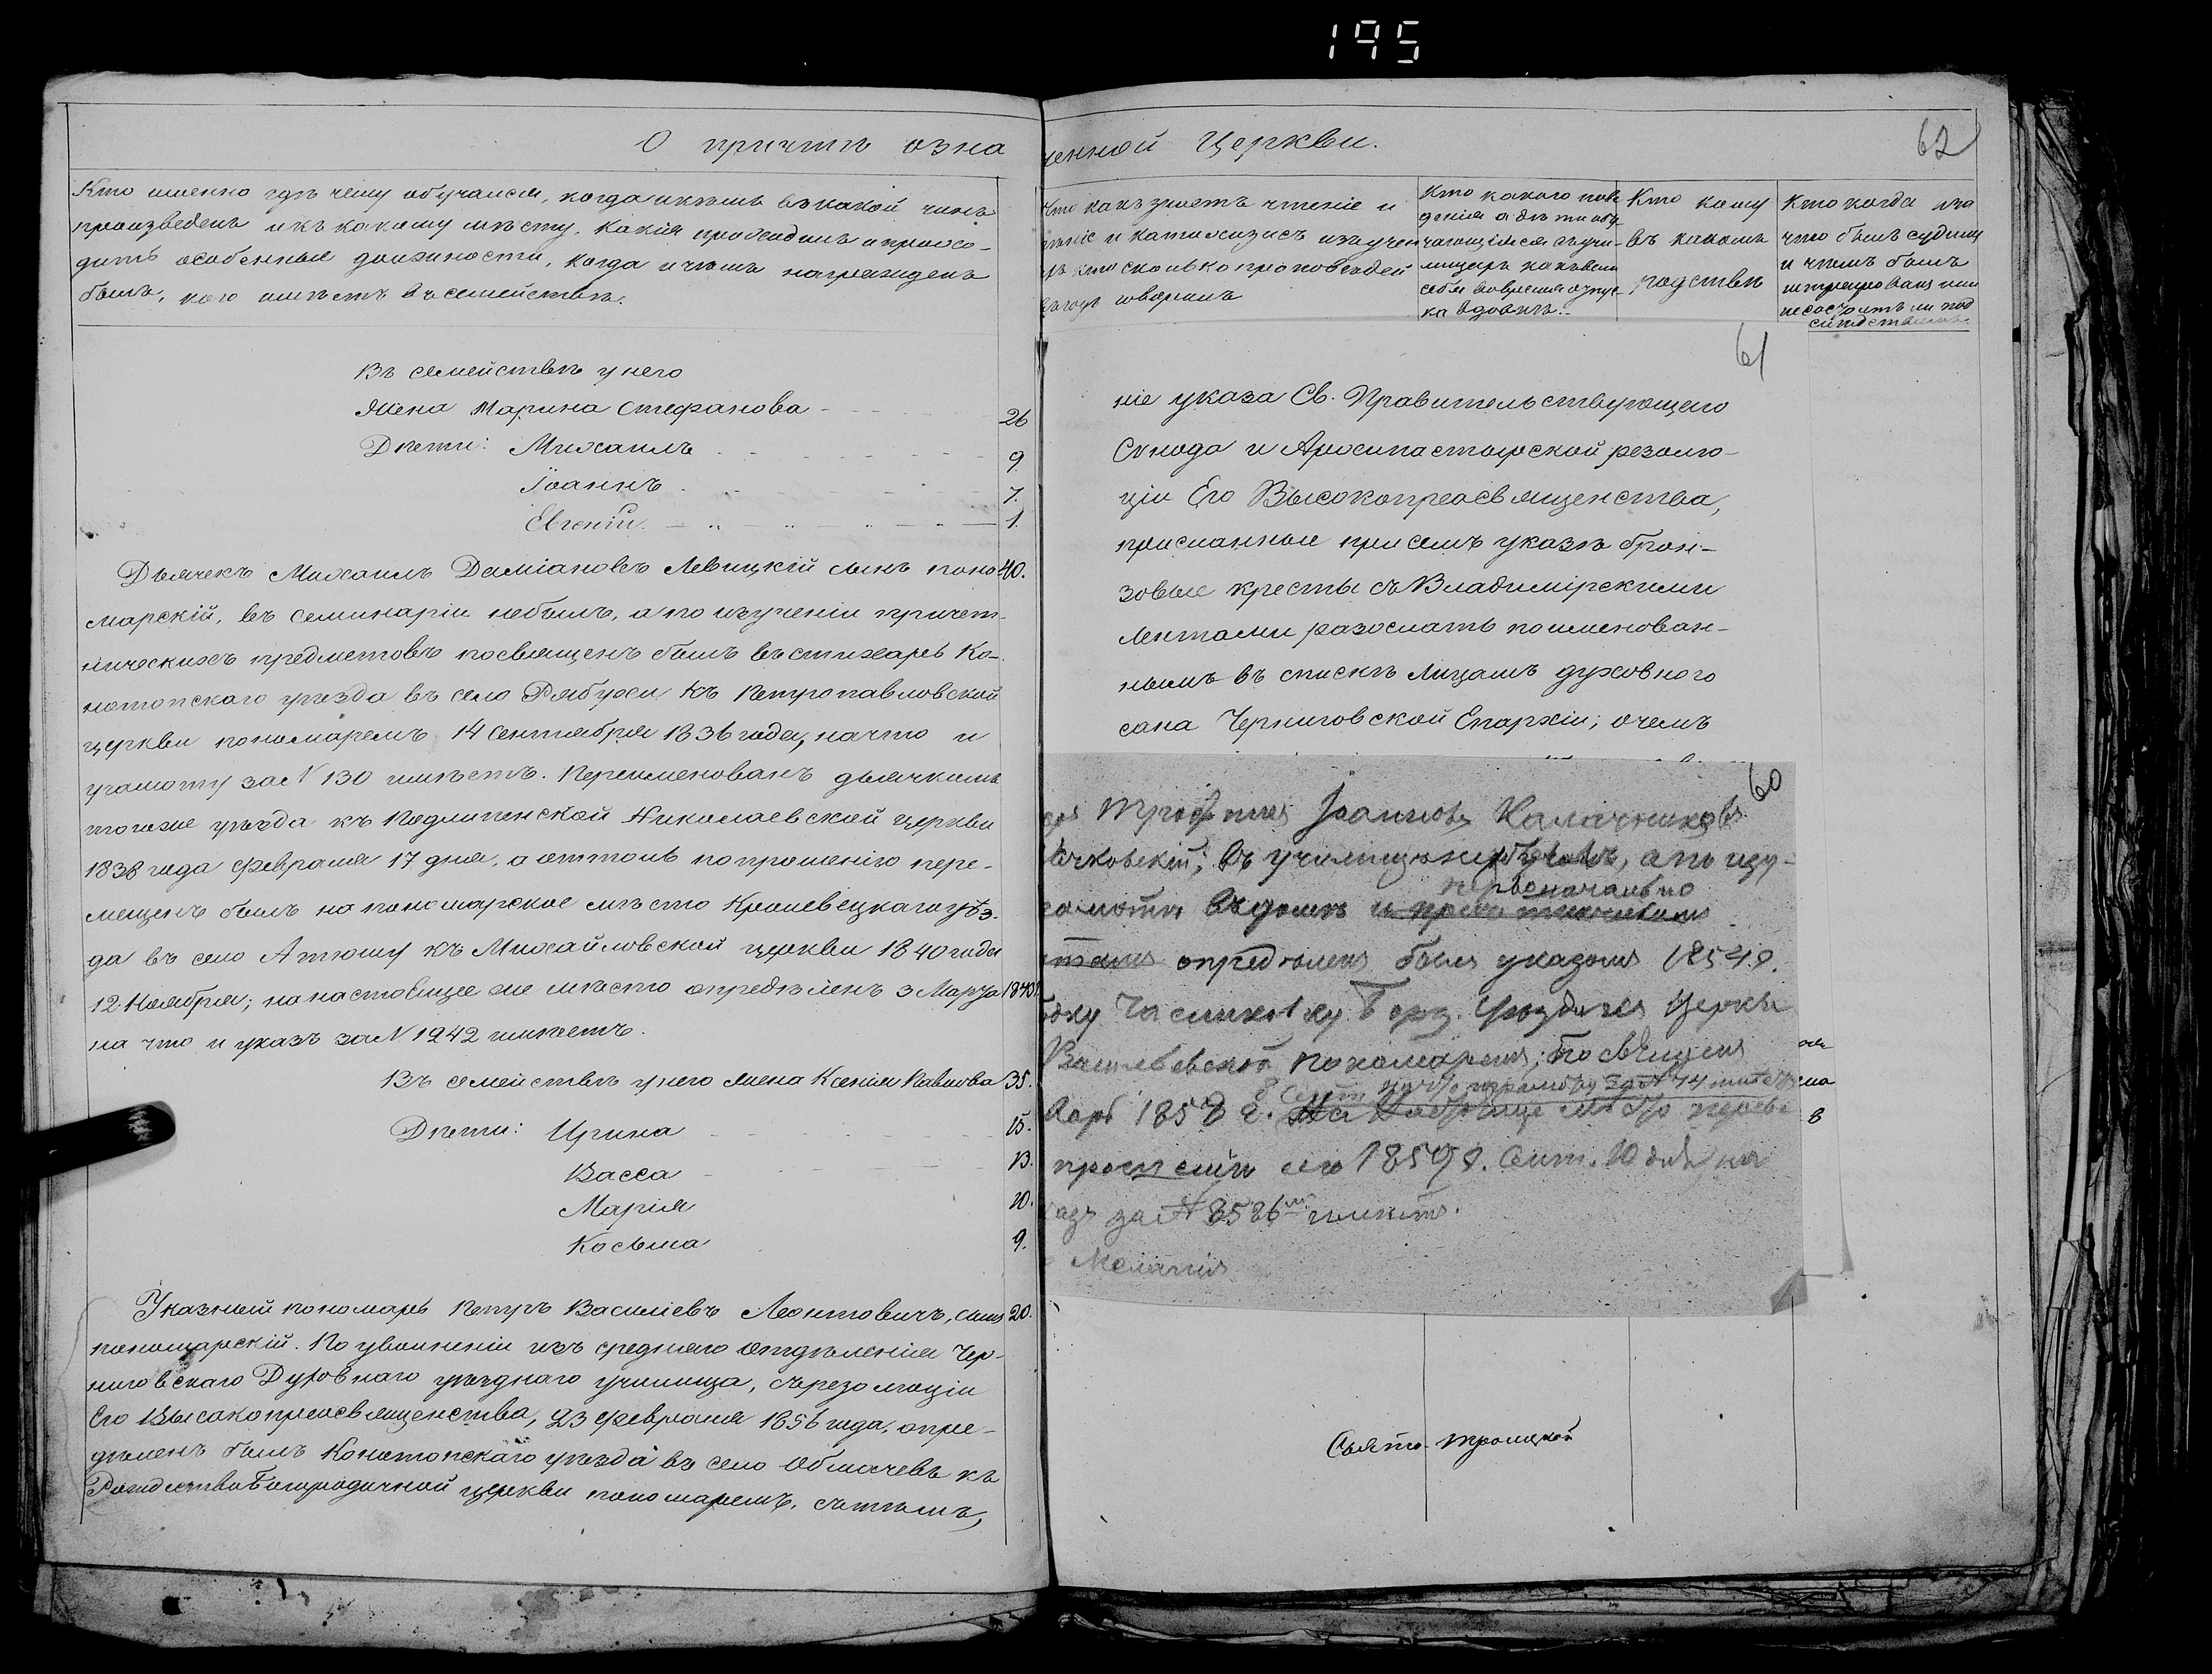 195
О причтѣ озна
ченной Церкви.
62
Кто именно гдѣ чему обучался, когда и кѣмъ въ какой чинъ
произведенъ и къ какому мѣсту. Какія проходилъ и прохо-
дитъ особенныя должности, когда и чѣмъ награжденъ
былъ, кого имѣетъ въ семействѣ.
Кто какъ знаетъ чтеніе и
пѣніе и катихизисъ изучен
кто сколько проповѣдей
въ годъ говорилъ
Кто какого пове
денія а дѣти обу-
чающіяся въ учи-
лищахъ какъ вели
себя во время отпус-
ка
Кто кому
въ какомъ
родствѣ
Кто когда за
что былъ судимъ
и чѣмъ былъ
штрафованъ или
не состоитъ ли под
слѣдствіемъ
61
Въ семействѣ у него
Жена Марина Стефанова 26
Дѣти: Михаилъ 9
Іоаннъ 7.
Евгеній. 1.
Дьячекъ Михаилъ Даміановъ Левицкій сынъ поно 40.
марскій, въ семинаріи небылъ, а по изученіи причет-
ническихъ предметовъ посвященъ былъ въ стихарь Ко-
нотопскаго уѣзда въ село Рябухи къ Петропавловской
церкви пономаремъ 14 Сентября 1836 года, на что и
грамоту за N 130 имѣетъ. Переименованъ дьячкомъ
тогоже уѣзда къ Подлипенской Николаевской церкви
1838 года Февраля 17 дня, а оттоль по прошенію пере-
мещенъ былъ на пономарское мѣсто Кролевецкаго уѣз-
да въ село Атюшу къ Михайловской церкви 1840 года
12 Ноября; на настоящее же мѣсто опредѣленъ 3 Марта 184
на что и указъ за N 1942 имѣетъ.
Въ семействѣ у него жена Ксенія Павлова 35.
Дѣти: Ирина 15.
Васса 13.
Марія 10.
Косьма 9.
Указный пономарь Петръ Василіевъ Леонтовичъ, сынъ 20.
пономарскій. По увольненіи изъ средняго отдѣленія Чер-
ниговскаго Духовнаго уѣзднаго училища, с резолюціи
Его Высокопреосвященства, 23 Февраля 1856 года, опре-
дѣленъ былъ Конотопскаго уѣзда въ село Обмачевъ къ
Рождество Богородичной церкви пономаремъ, с тѣмъ,
ніе указа Св. Правительствующаго
Сѵнода и Архипастырской резолю-
ціи Его Высокопреосвященства,
присланные при семъ указѣ брон-
зовые кресты съ Владимірскими
лентами разослать поименован-
нымъ въ спискѣ лицамъ духовнаго
сана Черниговской Епархіи; о чемъ
60
Трофимъ Іоанновъ Калачниковъ
въ училищѣ не былъ, а по изу-
первоначально
грамоты въ домѣ и
опредѣленъ былъ указомъ 1854 г.
Борз. уѣзда къ церкви
Васильевской пономаремъ; посвященъ
8 Сент. на что грамоту за N 44 имѣетъ
1858 г. На настоящее мѣсто переве
прошенію его 1859 г. Сент. 10 дня, на
указъ за N 8586 имѣетъ.
Меланія
Свято-Троицкой